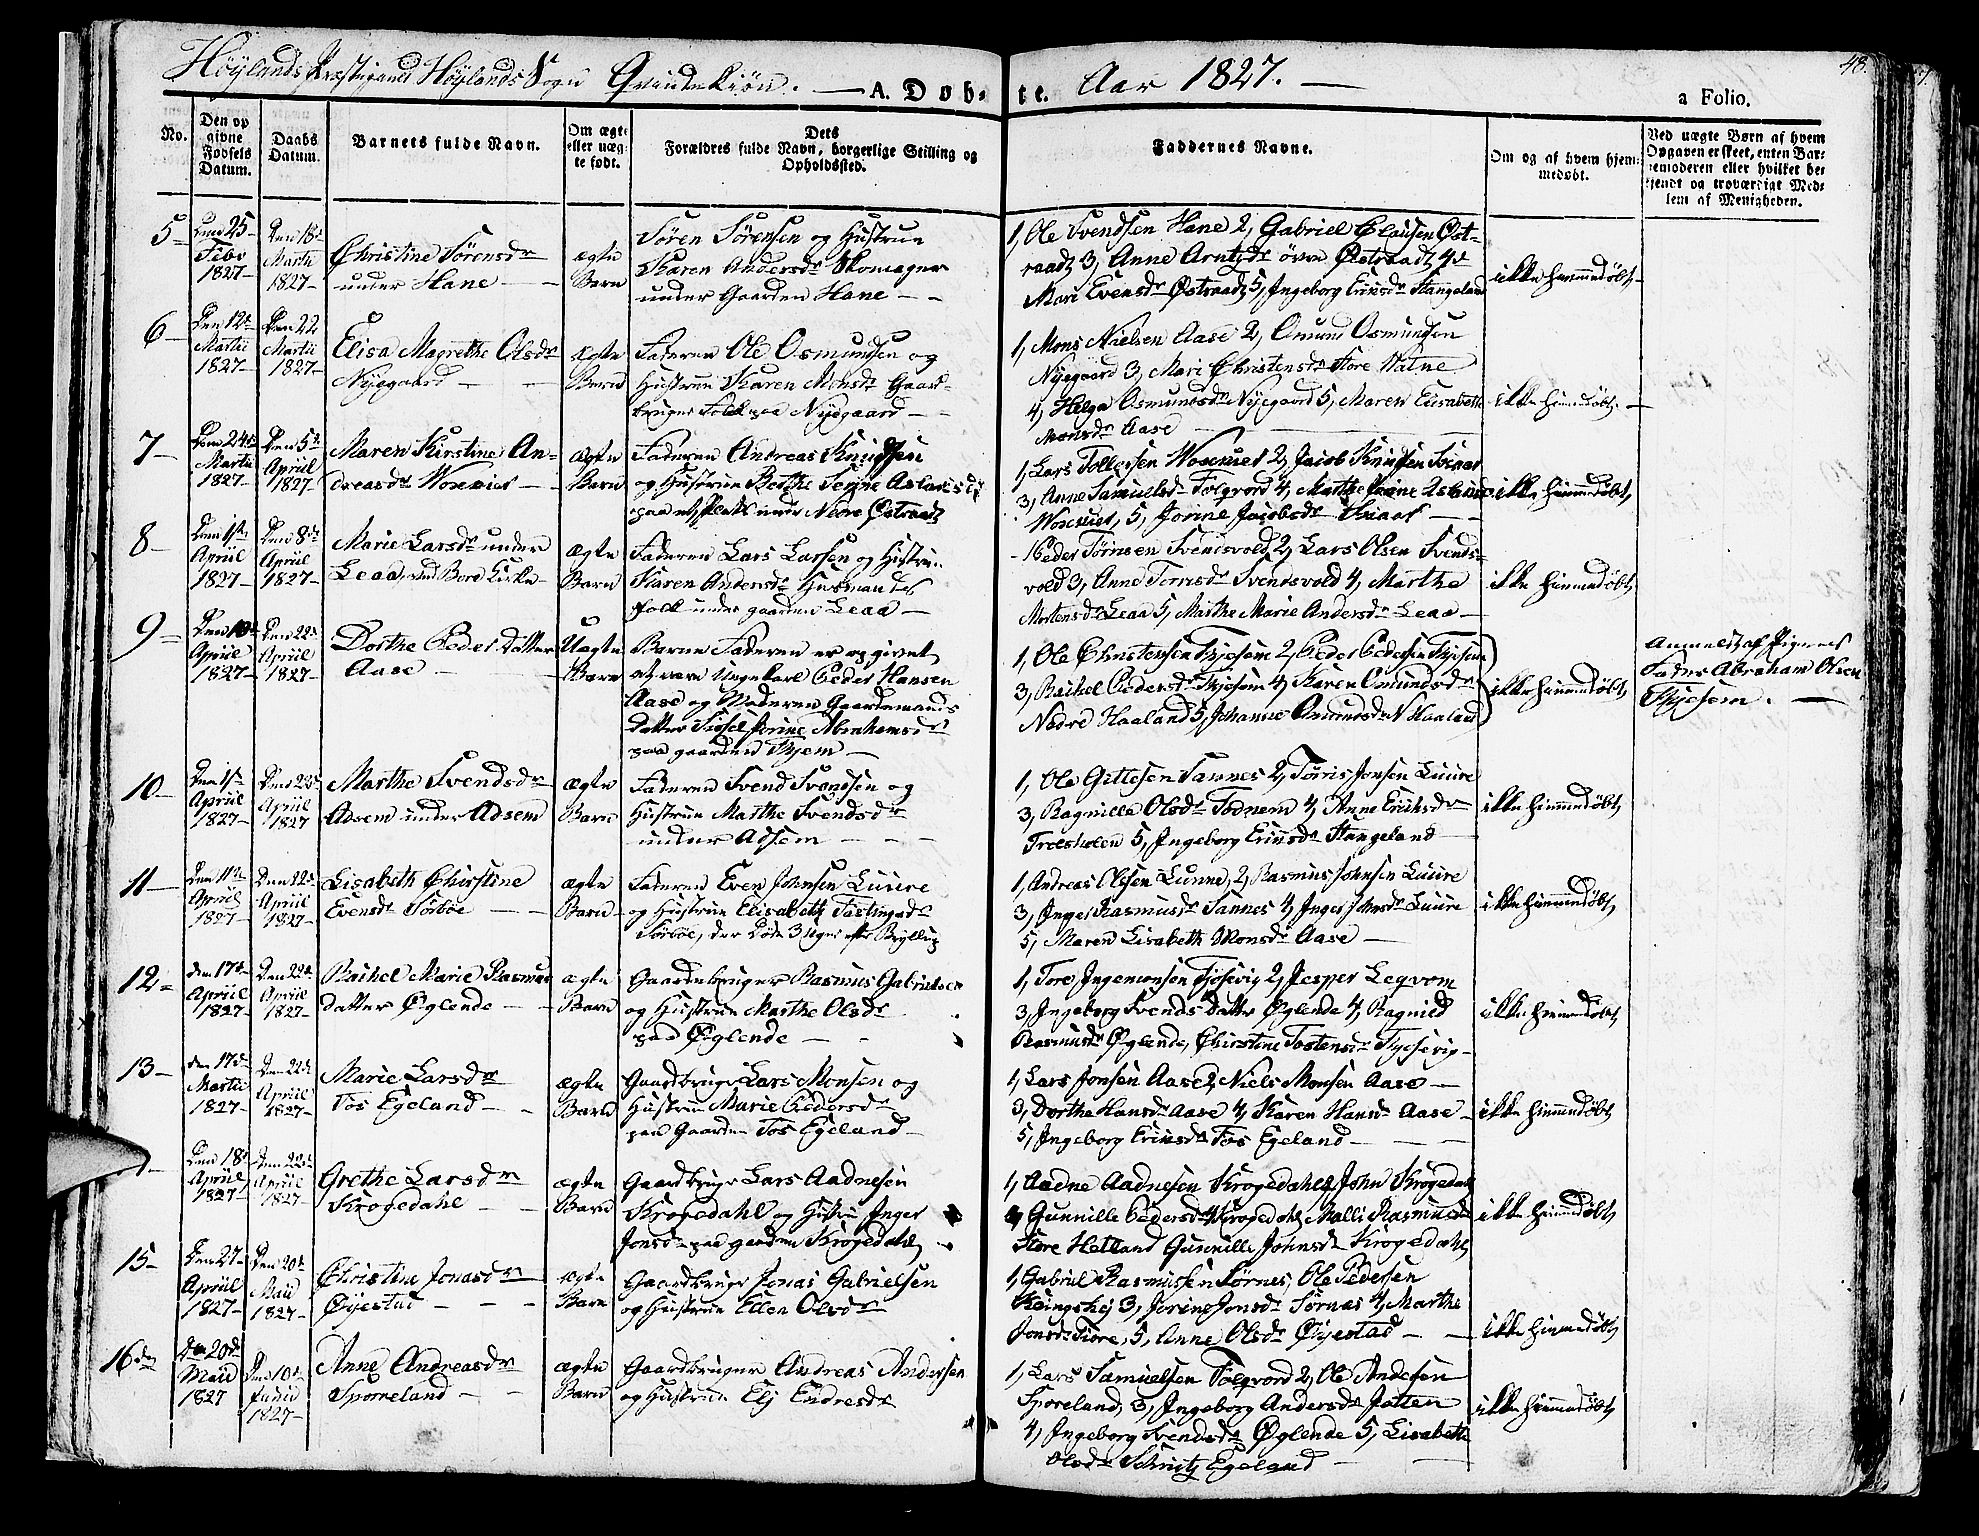 Höylands Præstegield Höylands Sogn Qvindekiön. — A. Döb-
te. Aar 1827. —
48.
a Folio.
No.
Den op
givne
Fødsels
Datum.
Daabs
Datum.
Barnets fulde Navn.
Om ægte
eller uæg-
te født.
Dets
Forældres fulde Navn, borgerlige Stilling og
Opholdssted.
Faddernes Navne.
Om og af hvem hjem-
medøbt.
Ved uægte Børn af hvem
Opgaven er skeet, enten Bar-
nemoderen eller hvilket be-
kjendt og troværdigt Med-
lem af Menigheden.
5-
Den 25-
Febr
1827-
Den 18de
Martii
1827-
Christine Sörensdr
under Hane
ægte
Barn
Sören Sörensen og Hustrue
Karen Andersdr Skomager
under Gaarden Hane - -
1, Ole Svendsen Hane 2, Gabriel Clausen Öst-
raadt 3, Anne Arntsdr övre Östraadt 4de
Mari Evensdr Östraadt 5, Ingeborg Eriksdr Stangeland
ikke hiemmedöbt-
6-
Den 12te
Martii
1827-
Den 22
Martii
1827-
Elisa Magrethe Olsdr
Nÿegaard - -
ægte
Barn
Faderen Ole Osmundsen og
Hustrue Karen Monsdr Gaard-
bruger Folk paa Nÿegaard - -
1, Mons Nielsen Aase 2, Omund Osmundsen
Nÿegaard 3, Mari Christensdr Store Watne
4, Helga Osmundsdr Nÿegaard 5, Maren Elisabeth
Monsdr Aase
ikke hiemmedöbt-
7-
Den 24de
Martii
1827-
Den 5te
Apriil
1827-
Maren Kirstine An-
dreasdr
ægte
Barn
Faderen Andreas Knudsen
og Hustrue Berthe Serine
paa et Plads under Nedre Östraadt
1, Lars Tollefsen 2, Jacob Knudsen
3, Anne Samuelsdr Fölgvord 4, Marthe
5, Jorine Jacobsdr
ikke hiemmedöbt
8-
Den 1ste
Apriil
1827-
Den 8de
Apriil
1827-
Marie Larsdr under
Leaa, ved Bore Kirke
ægte
Barn
Faderen Lars Larsen og Hustrue
Karen Andersdr Husmandes
folk under gaarden Leaa -
Peder Svendsvold 2, Lars Olsen Svends-
vold 3, Anne Svendsvold 4, Marthe
Mortensdr Leaa 5, Marthe Marie Andersdr Leaa -
ikke hiemmedöbt
9-
Den 10de
Apriil
1827-
Den 22de
Apriil
1827-
Dorthe Peders datter
Aase -
Uægte
Barn
Barne Faderen er opgivet
at være Ungekarl Peder Hansen
Aase og Moderen Gaardemands
datter Sissel Jorine Abrahamsdr
paa gaarden
1, Ole Christensen 2, Peder Pedersen
3, Rachel Pedersdr 4, Karen Omundsdr
Nedre Haaland 5, Johanne Omundsdr N Haaland
ikke hiemmedöbt
Anmeldt af Pigens
Fader Abraham Olsen
10-
Den 1ste
Apriil
1827-
Den 22de
Apriil
1827
Marthe Svendsdr
Adsem under Adsem
ægte
Barn
Faderen Svend Svendsen og
Hustrue Marthe Svendsdr
under Adsem - - -
1, Ole Gittlesen Sannes 2, Jonsen Luure
3, Ragnille Olsdr Fodnem 4, Anne Eriksdr
5, Ingeborg Eriksdr Stangeland
ikke hiemmedöbt
11-
Den 11te
Apriil
1827-
Den 22de
Apriil
1827-
Lisabeth Christine
Evensdr Sörböe
ægte
Barn
Faderen Even Johnsen Luure
og Hustrue Elisabeth
Sörböe, der döde 3 Uger efter Brÿllup
1, Andreas Olsen Lunne, 2, Rasmus Johnsen Luure
3, Inger Rasmusdr Sannes 4, Inger Johnsdr Luure
5, Maren Lisabeth Monsdr Aase -
ikke hiemmedöbt
12-
den 17de
Apriil
1827-
Den 22de
Apriil
1827-
Rachel Marie Rasmus
datter Öglende -
ægte
Barn
Gaardebruger Rasmus Gabrielsen
og Hustrue Marthe Olsdr
paa Öglende - -
1, Tore Ingemonsen 2, Jesper Leqvom
3, Ingeborg Svends datter Öglende 4, Ragnild
Rasmusdr Öglende, Christine Tostensdr
ikke hiemmedöbt
13-
den 17de
Martii
1827-
Den 22de
Apriil
1827-
Marie Larsdr
Fos Egeland - -
ægte
Barn
Gaardbruger Lars Monsen og
Hustrue Marie Pedersdr
paa Gaarden Fos Egeland -
1, Lars Jonsen Aase 2, Niels Monsen Aase -
3, Dorthe Hansdr Aase 4, Karen Hansdr Aase -
5, Ingeborg Eriksdr Fos Egeland -
ikke hiemmedöbt
Den 18de
Apriil
1827-
Den 22de
Apriil
1827
Grethe Larsdr
Krogedahl - -
ægte
Barn
Gaardbruger Lars Aadnesen
Krogedahl og Hustrue Inger
Jonsdr paa gaarden Krogedahl -
1, Aadne Aadnesen Krogedahl 2, John Krogedahl
3, Gunnille Pedersdr Krogedahl, Malli Rasmusdr
Store Hetland Gunnille Johnsdr Krogedahl
ikke hiemmedöbt
15-
Den 27-
Apriil
1827-
Den 20de
Maii
1827-
Christine Jonasdr
Öÿestad - - -
ægte
Barn
Gaardbruger Jonas Gabrielsen
og Hustrue Ellen Olsdr
1, Gabriel Rasmussen Sörnes, Ole Pedersen
3, Jorine Jonsdr Sörnæs 4, Marthe
Jonsdr 5, Anne Olsdr Öÿestad - -
ikke hiemmedöbt
16de
Den 20de
Maii
1827
Den 10de
Junii
1827-
Anne Andreasdr
Sporreland - -
ægte
Barn
Gaardbruger Andreas Andersen
og Hustrue Elj Endresdr
1, Lars Samuelsen Fölgvord 2, Ole Andersen
Sporeland, 3, Ingeborg Andersdr Jatten
4, Ingeborg Svendsdr Öglende 5, Lisabeth
Olsdr Egeland -
ikke hiemmedöbt